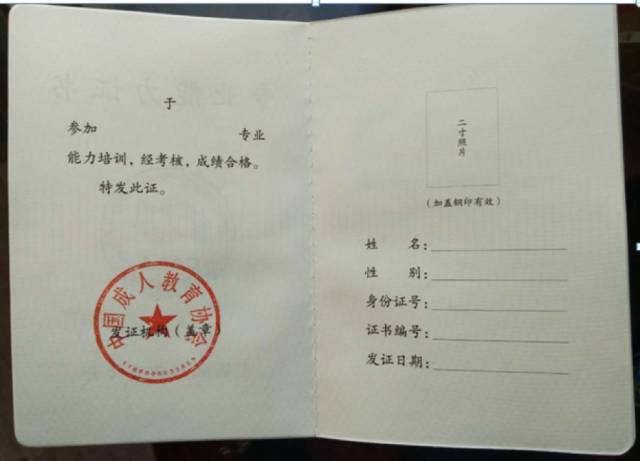 于
参加 专业
能力培训，经考核，成绩合格。
特发此证。
中国成人教育协会
发证机构（盖章）
二寸照片
（加盖钢印有效）
姓 名：
性 别：
身份证号：
证书编号：
发证日期：